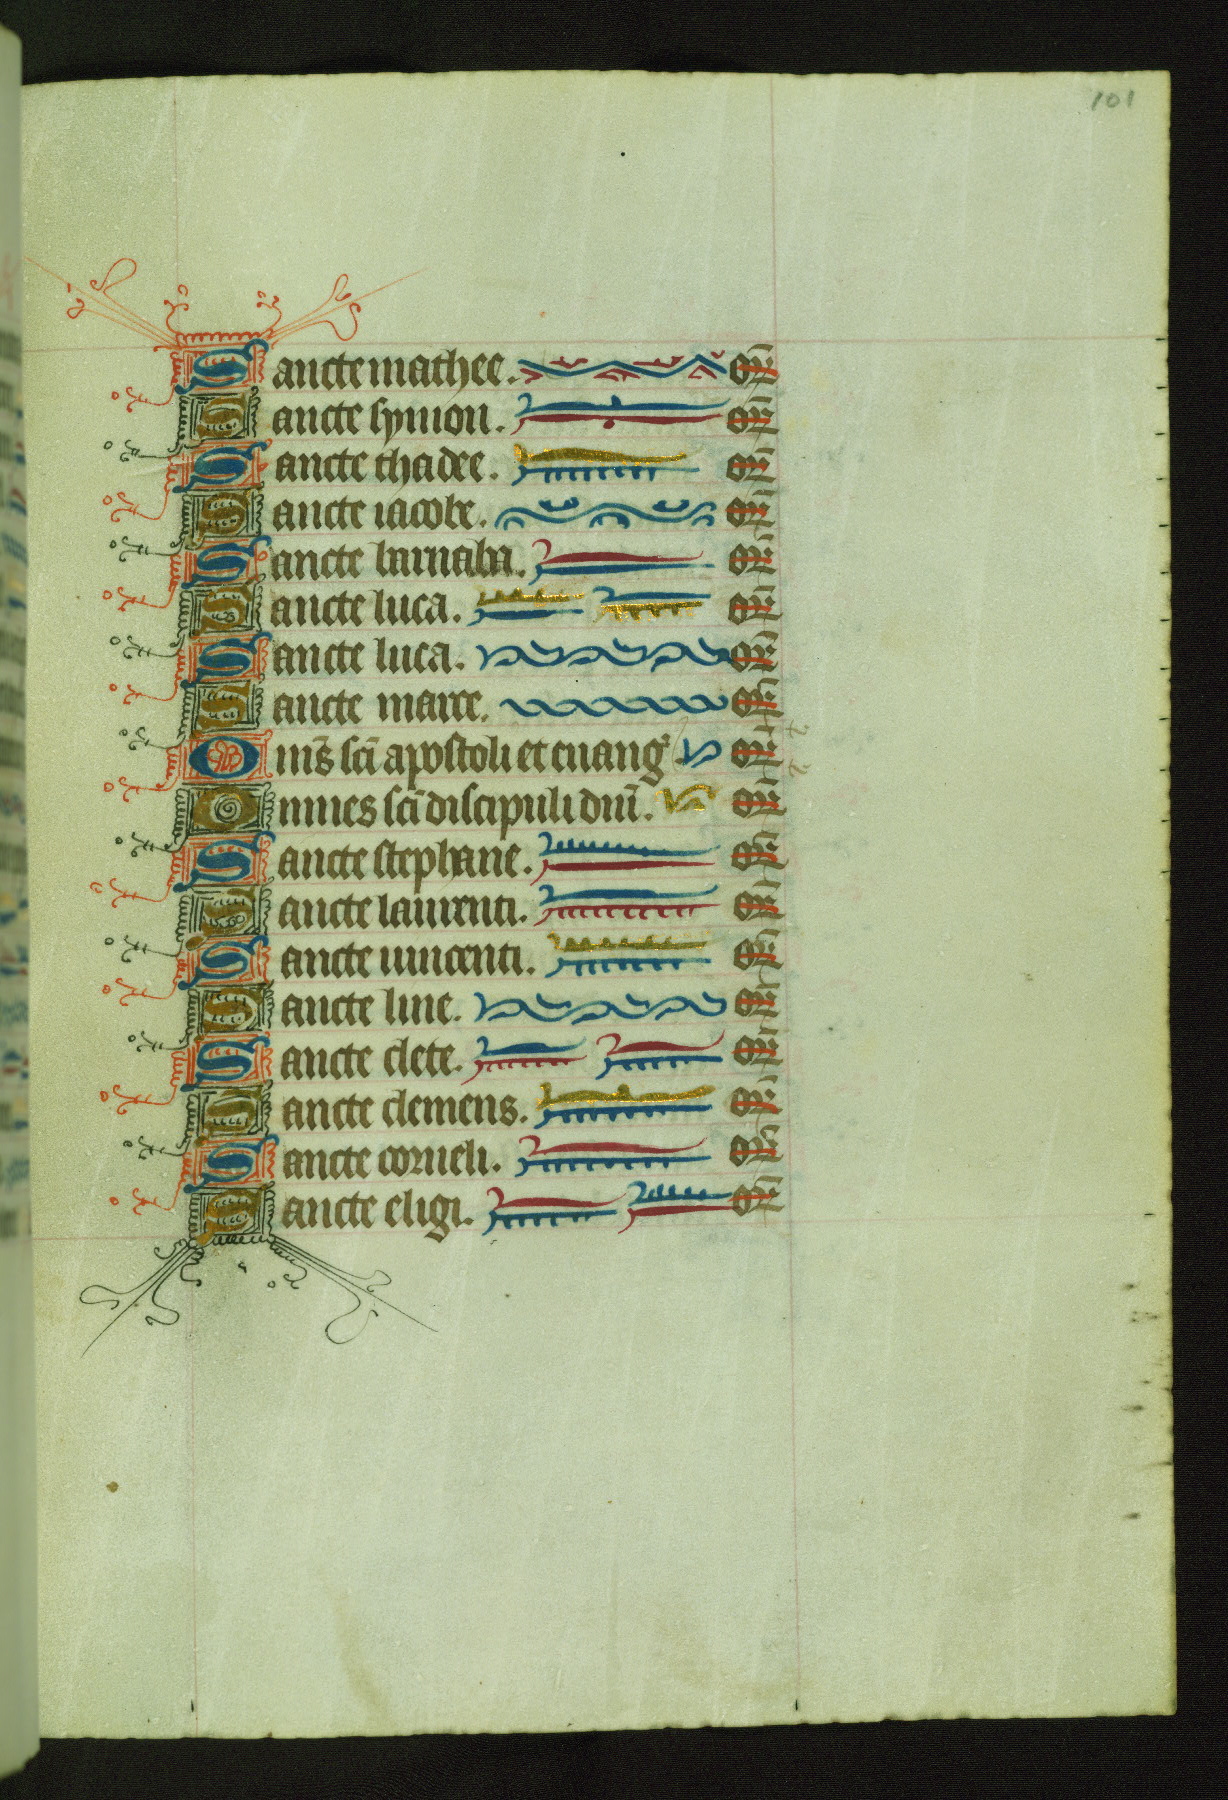 101
Sancte mathee. or̄
Sancte symon. or̄
Sancte thadee. or̄
Sancte iacobe. or̄
Sancte barnaba. or̄
Sancte luca. or̄
Sancte luca. or̄
Sancte marce. or̄
Om̄s sc̄i apostoli et euang' or̄
Omnes sc̄i discipuli dnī. or̄
Sancte stephane. or̄
Sancte laurenti. or̄
Sancte uincenti. or̄
Sancte line. or̄
Sancte clete. or̄
Sancte clemens. or̄
Sancte corneli. or̄
Sancte eligi. or̄